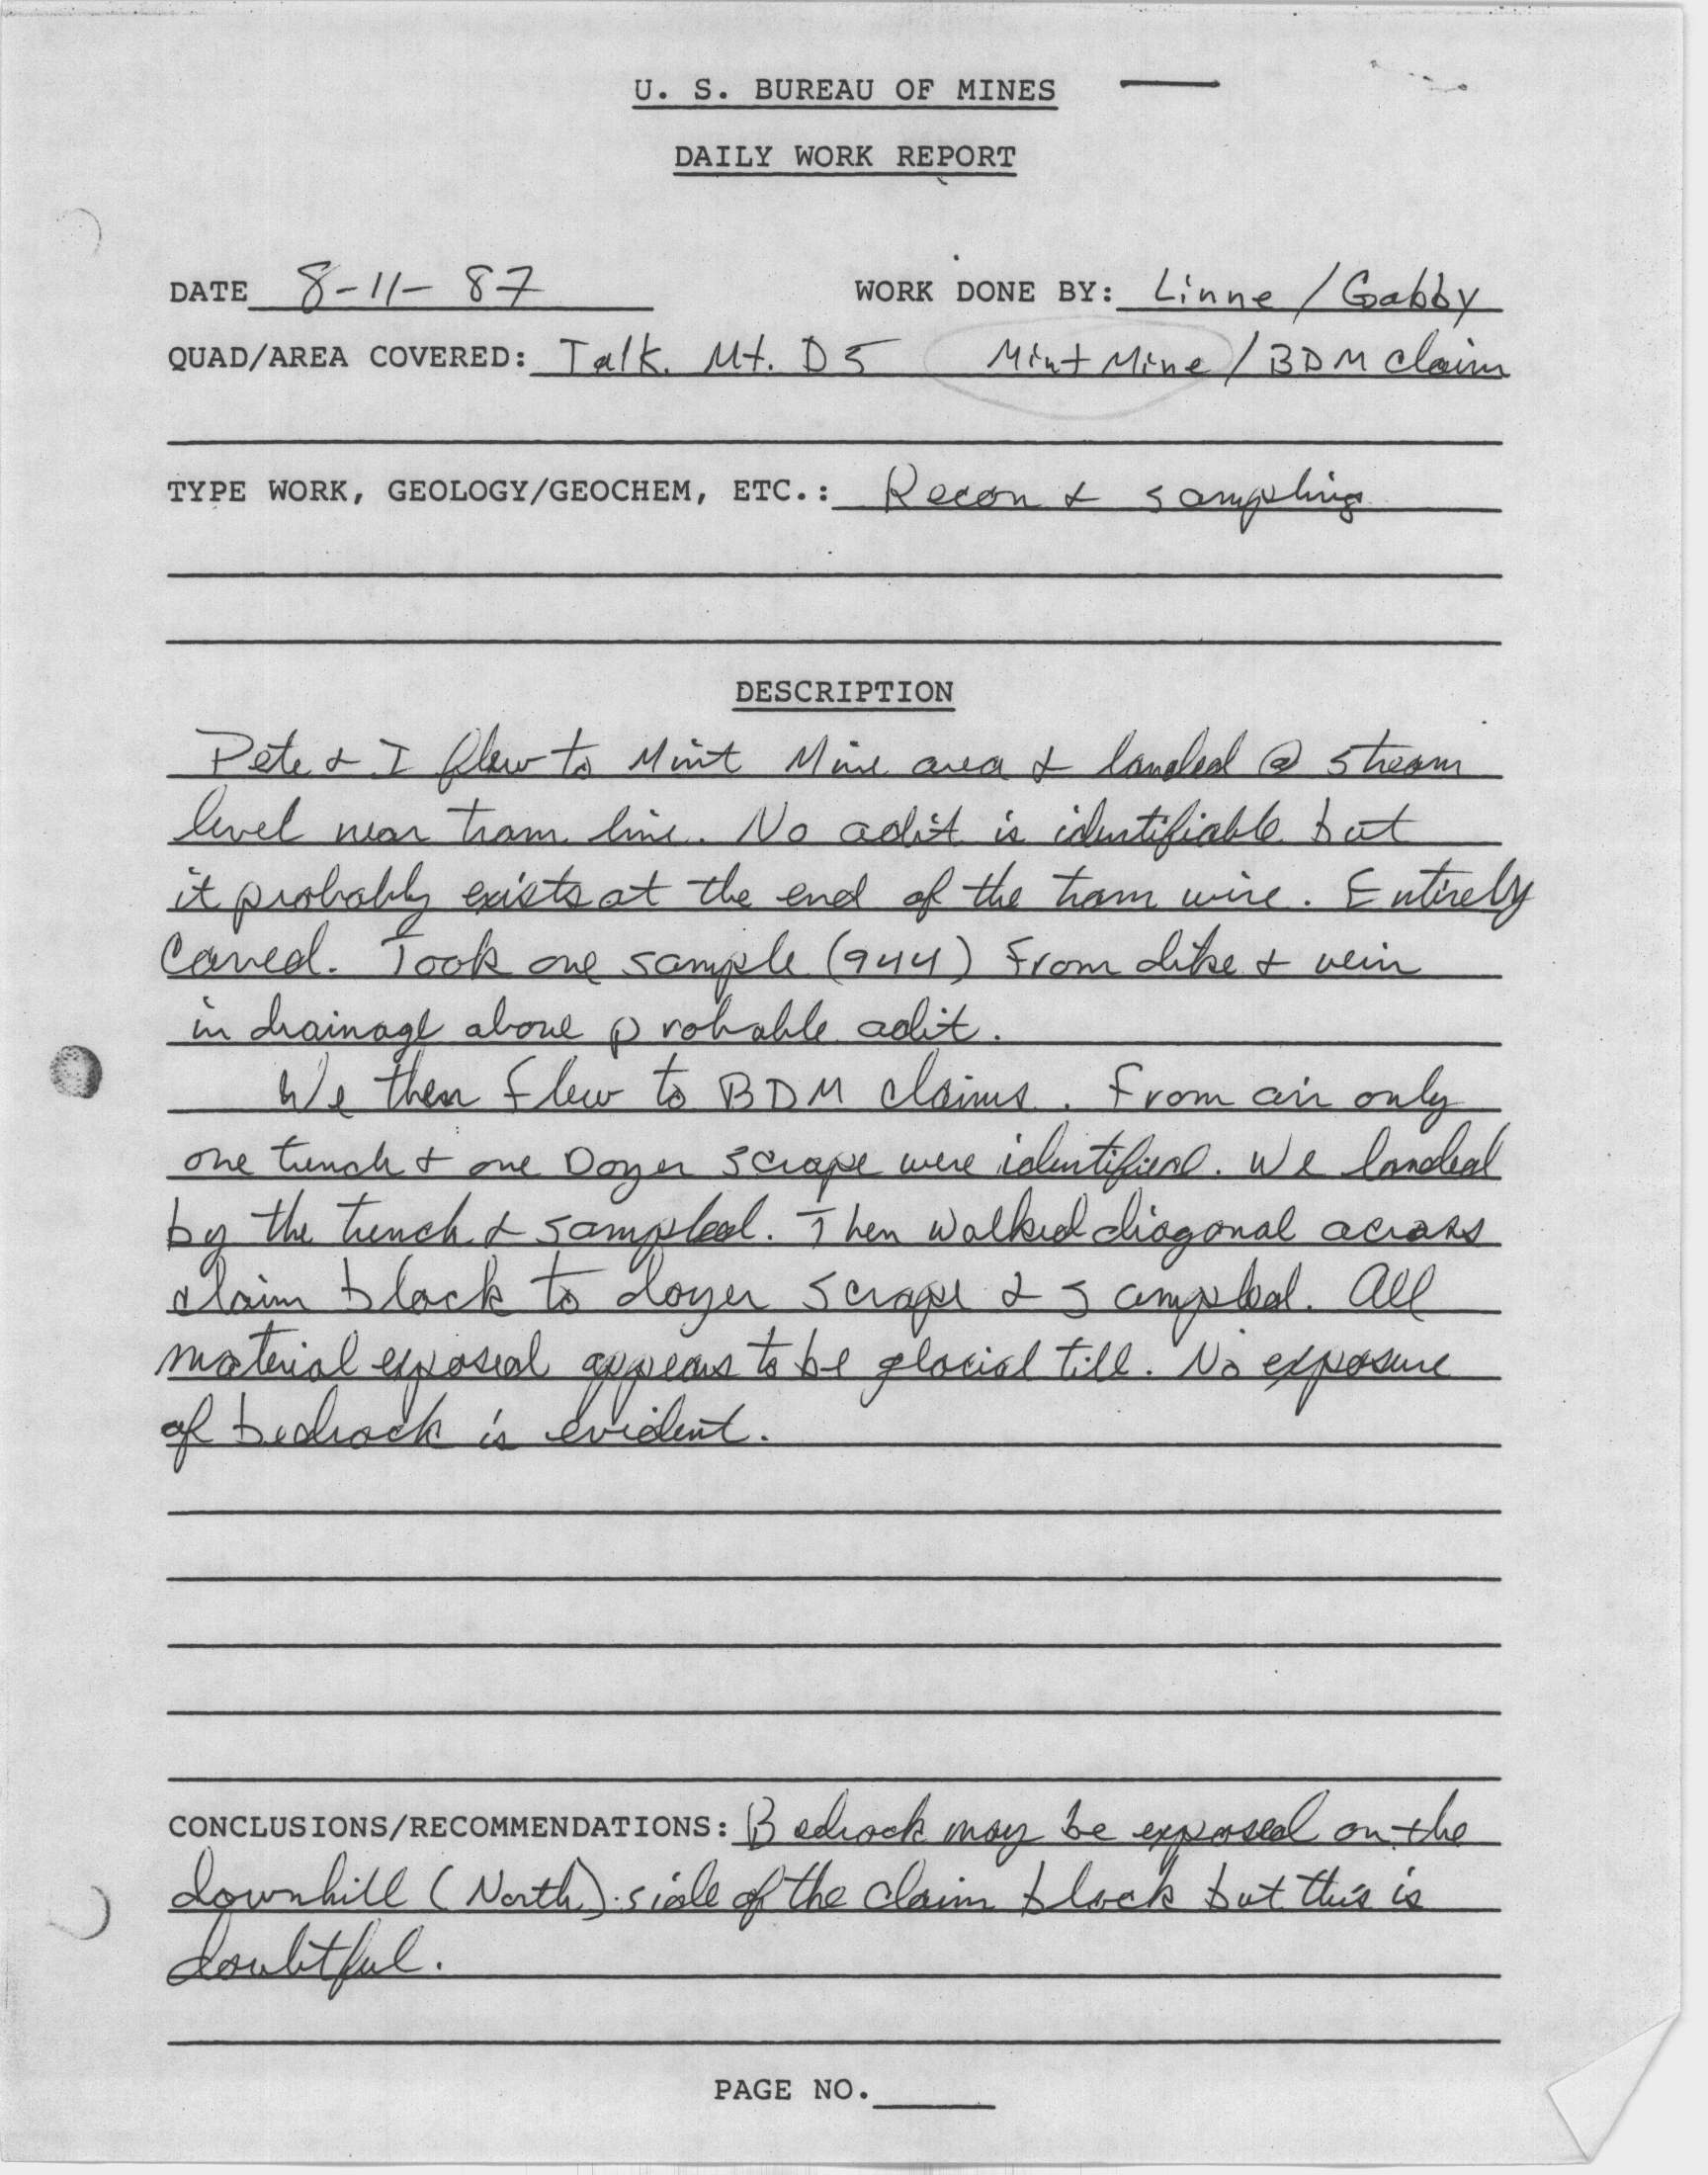 U. S. BUREAU OF MINES
DAILY WORK REPORT
DATE 8-11-87 WORK DONE BY: Linne / Gabby
QUAD/AREA COVERED: Talk. Mt. D5 Mint Mine / BDM claim
TYPE WORK, GEOLOGY/GEOCHEM, ETC.: Recon & sampling
DESCRIPTION
Pete & I flew to Mint Mine area & landed @ stream
level near tram line. No adit is identifiable but
it probably exists at the end of the tram wire. Entirely
Caved. Took one sample (944) from dike & vein
in drainage above probable adit.
We then flew to BDM claims. From air only
one trench & one Dozer scrape were identified. We landed
by the trench & sampled. Then walked diagonal across
claim block to dozer scrape & sampled. All
material exposed appears to be glacial till. No exposure
of bedrock is evident.
CONCLUSIONS/RECOMMENDATIONS: Bedrock may be exposed on the
downhill (North) side of the claim block but this is
doubtful.
PAGE NO.